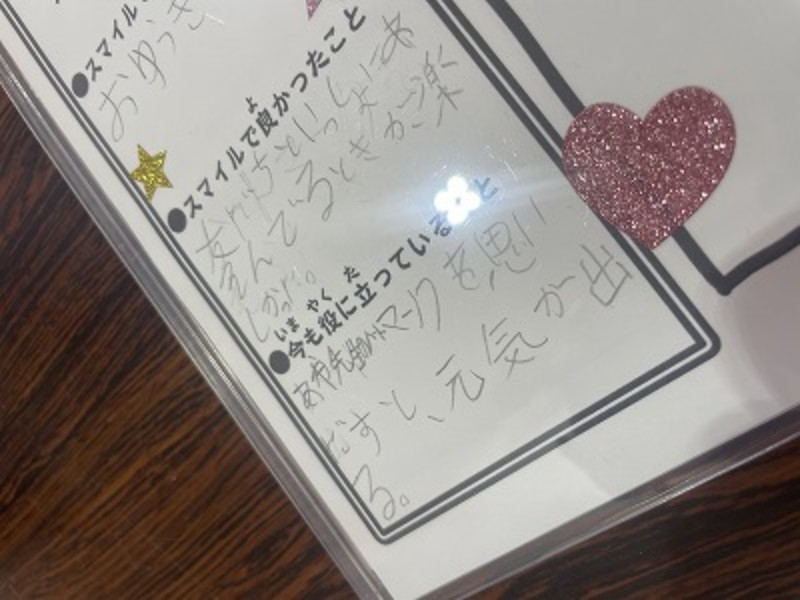 ●スマイル
おゆうき
●スマイルで良かったこと
よ
友だちといっしょにあ
そんでるときが楽
しかった。
●今も役に立っていること
いま やく た
あや先生のハートマークを思い
だすと、元気が出
る。